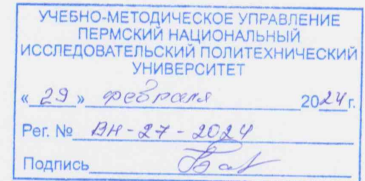 УЧЕБНО-МЕТОДИЧЕСКОЕ УПРАВЛЕНИЕ
ПЕРМСКИЙ НАЦИОНАЛЬНЫЙ
ИССЛЕДОВАТЕЛЬСКИЙ ПОЛИТЕХНИЧЕСКИЙ
УНИВЕРСИТЕТ
«29» февраля 2024 г.
Рег. № ВН-27-2024
Подпись